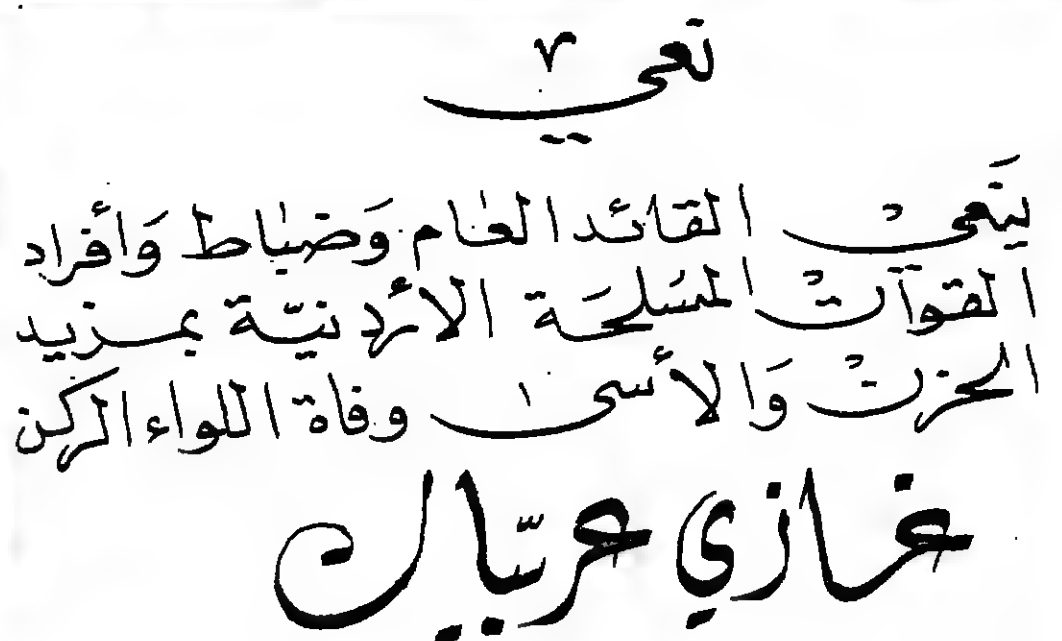 نعي
ينعى القائد العام وضباط وأفراد
القوات المسلحة الأردنية بمزيد
الحزن والأسى وفاة اللواء الركن
غازي عربيات